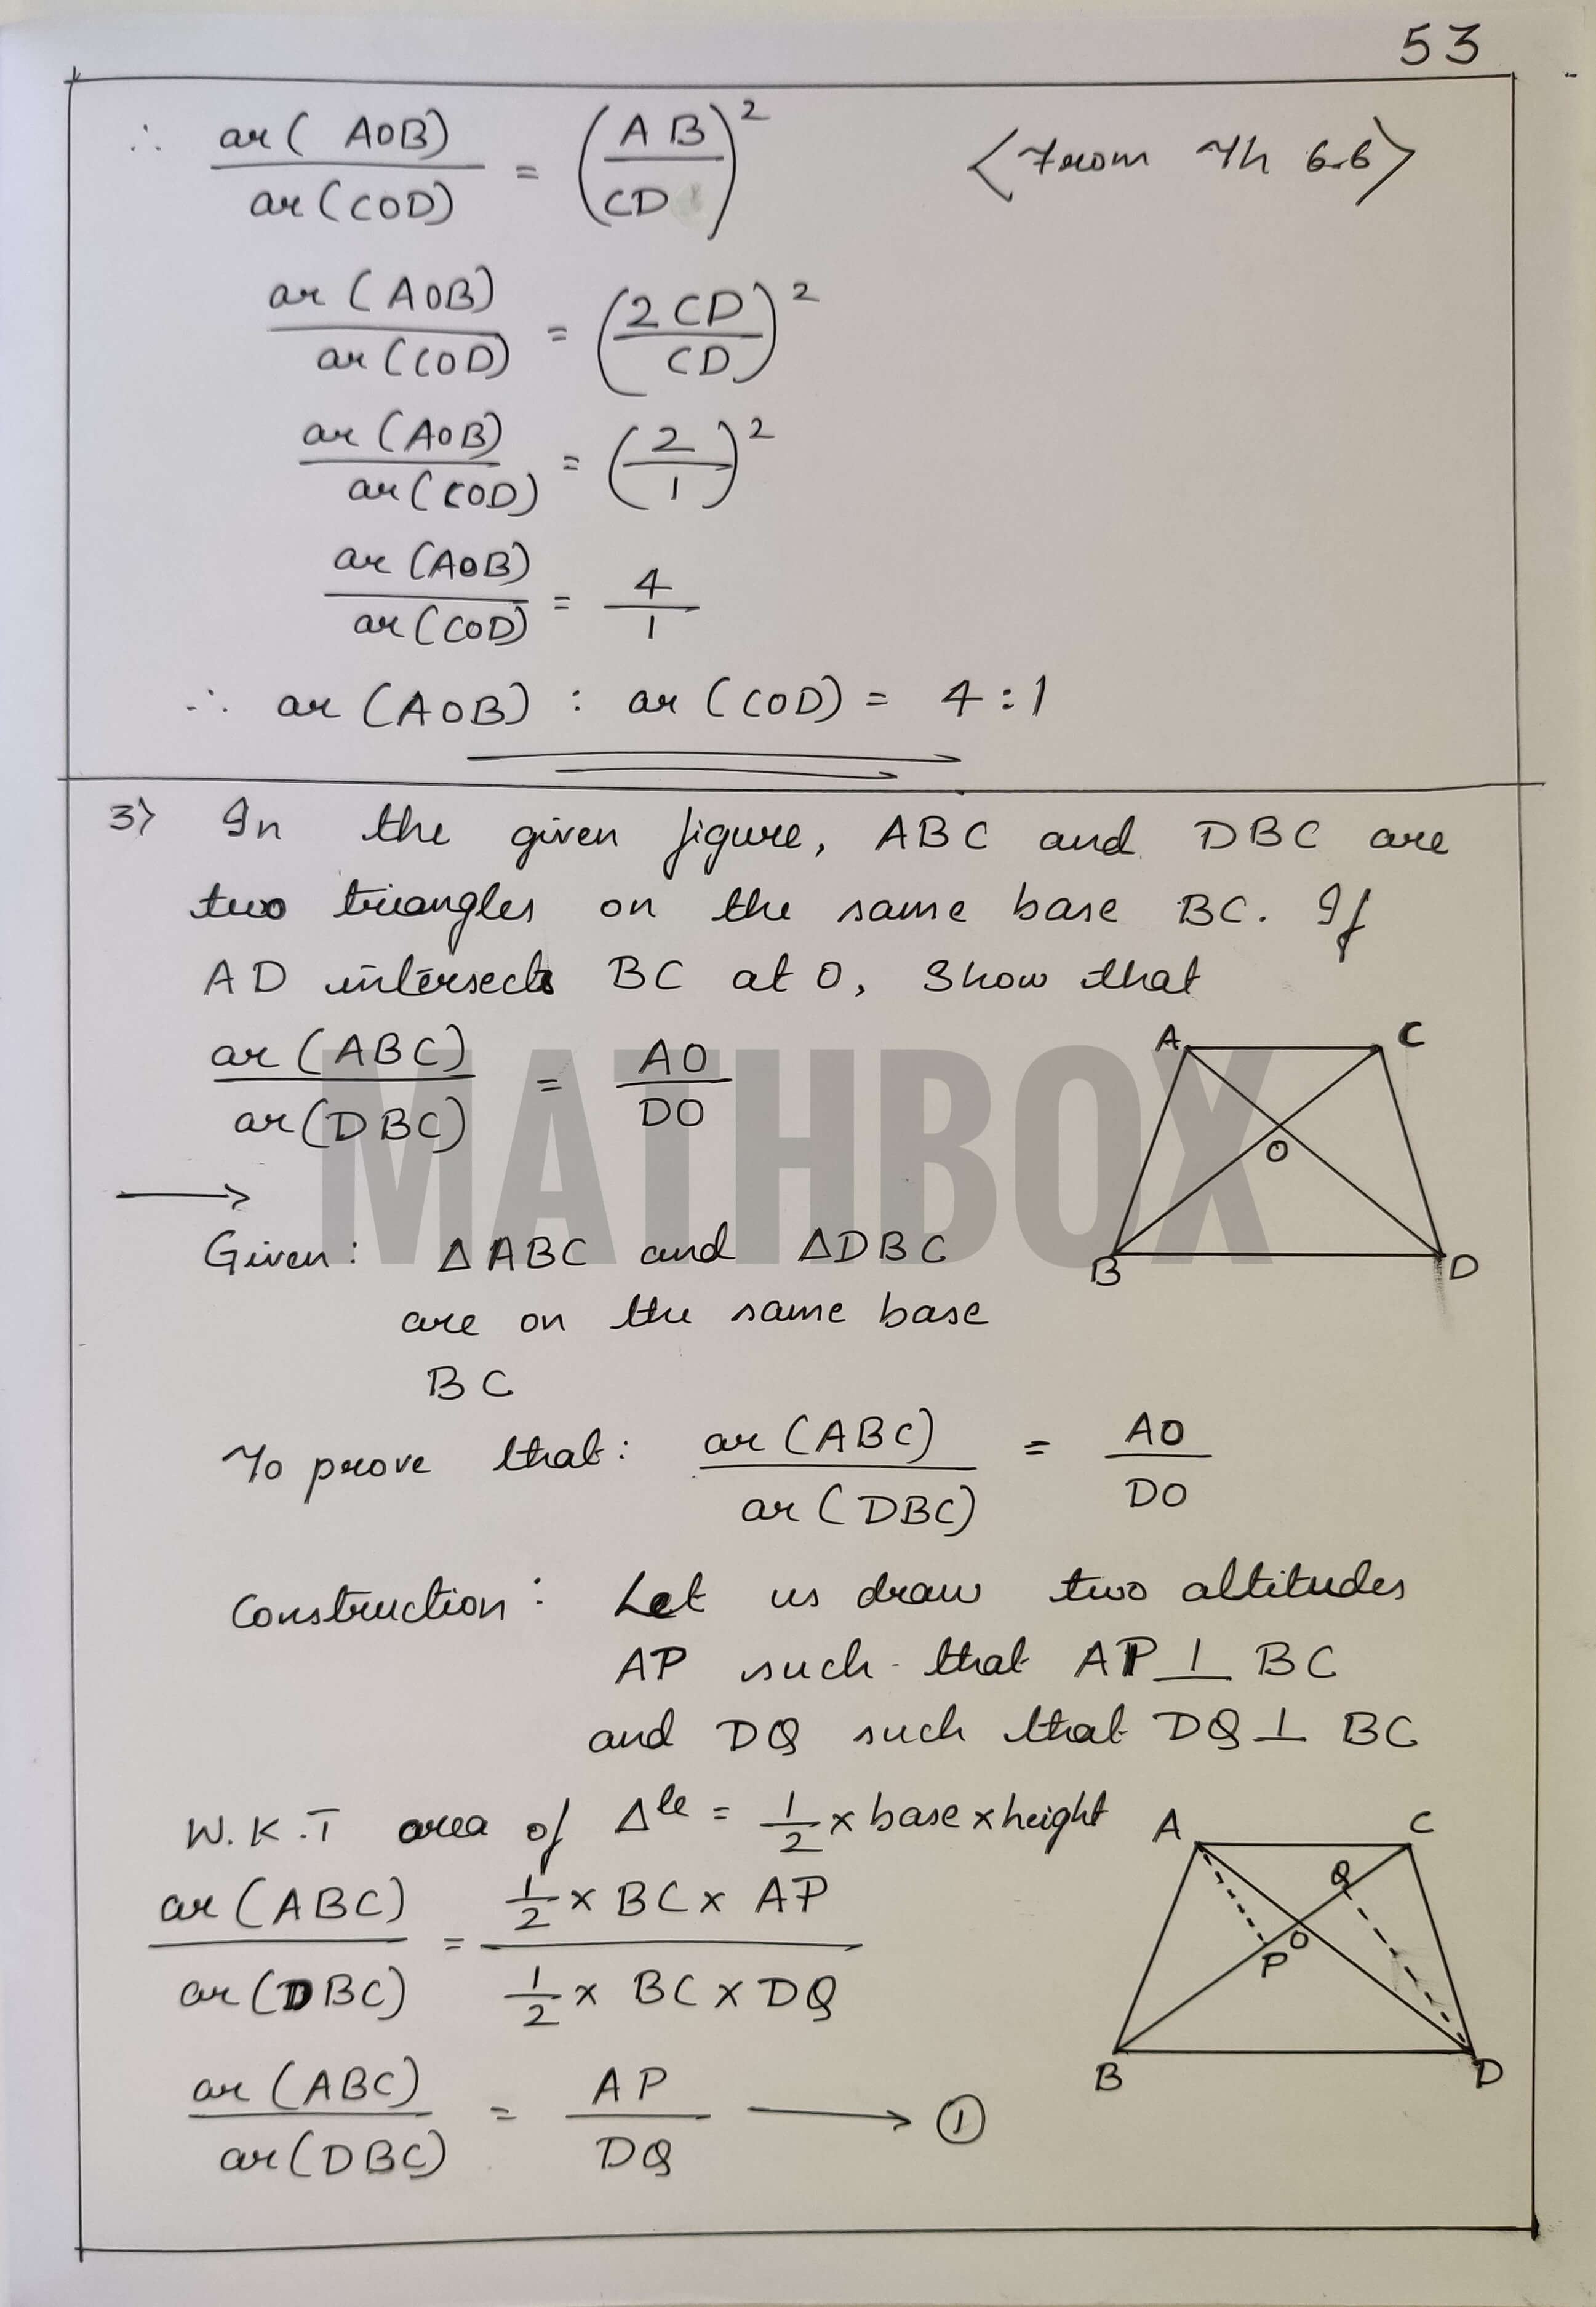 53
∴ ar( AOB) / ar(COD) = (AB/CD)² <From Th 6.6>
ar(AOB) / ar(COD) = (2CD/CD)²
ar(AOB) / ar(COD) = (2/1)²
ar(AOB) / ar(COD) = 4/1
∴ ar(AOB) : ar(COD) = 4:1
3> In the given figure, ABC and DBC are
two triangles on the same base BC. If
AD intersects BC at O, Show that
ar(ABC) / ar(DBC) = AO/DO
A C
O
B D
MATHBOX
→
Given: ΔABC and ΔDBC
are on the same base
BC
To prove that: ar(ABC) / ar(DBC) = AO/DO
Construction: Let us draw two altitudes
AP such that AP ⊥ BC
and DQ such that DQ ⊥ BC
W.K.T area of Δle = 1/2 x base x height
ar(ABC) / ar(DBC) = 1/2 x BC x AP / 1/2 x BC x DQ
A C
Q
O
P
B D
ar(ABC) / ar(DBC) = AP/DQ → ①